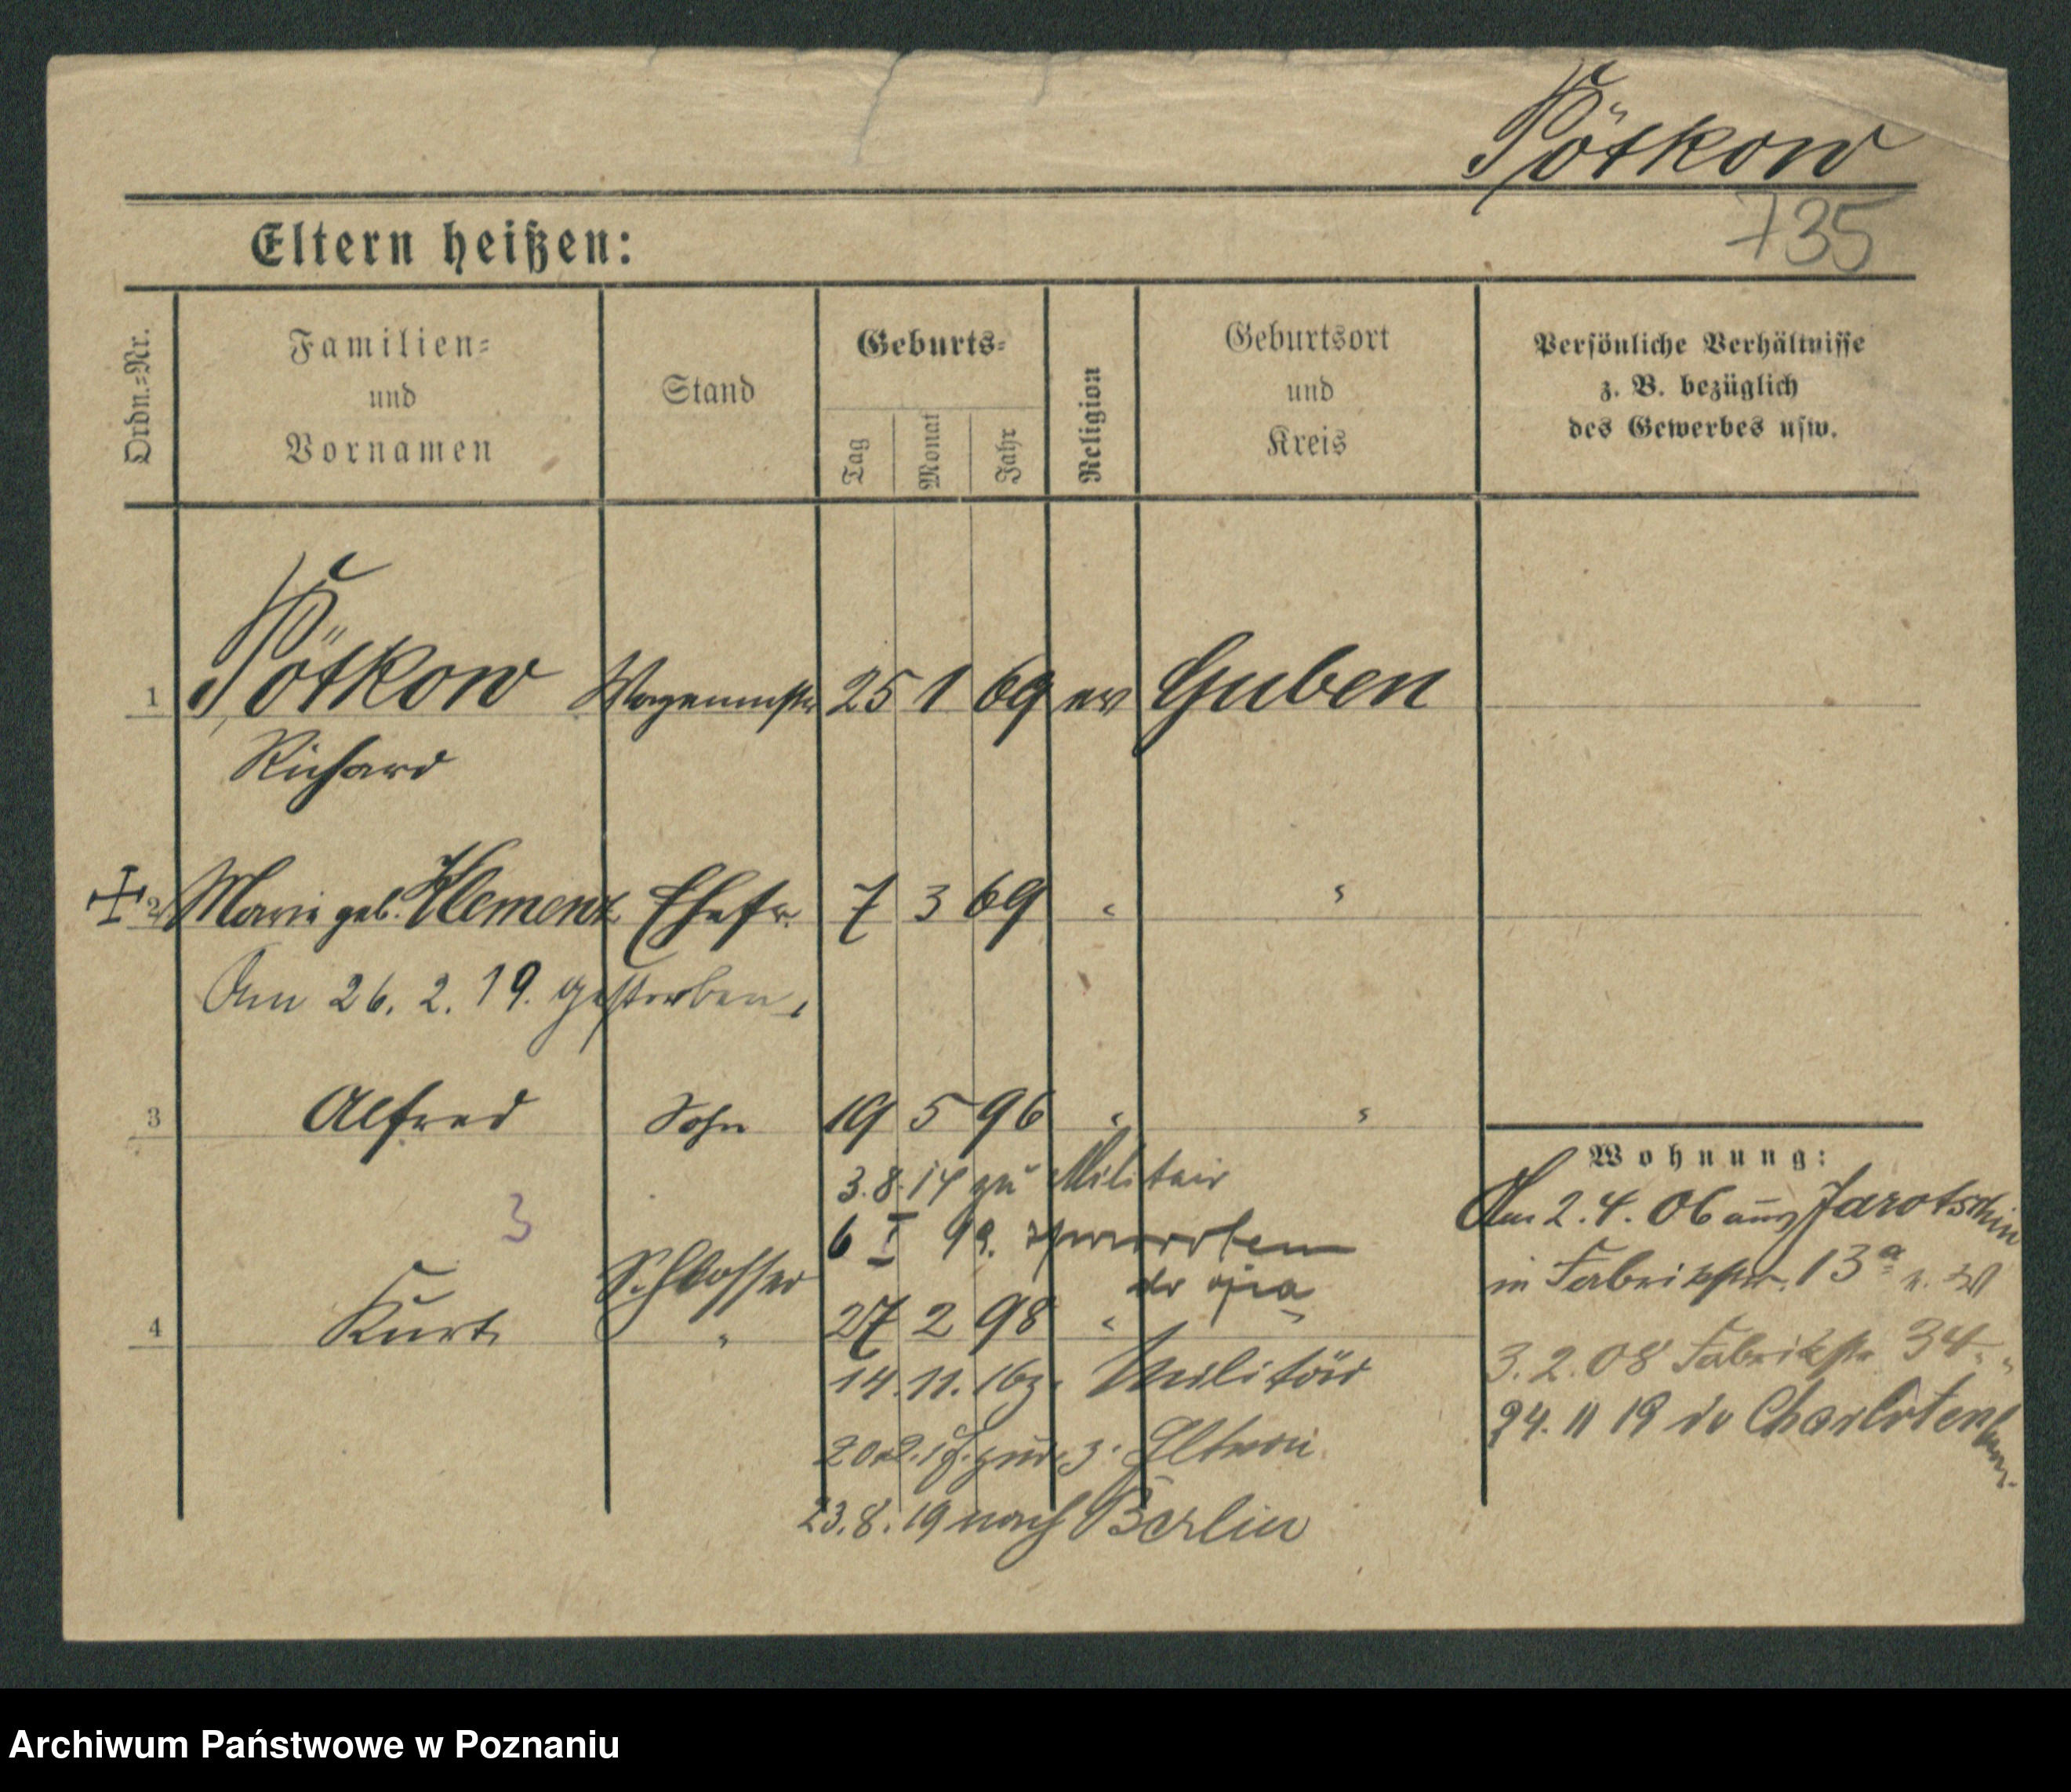 Pötkow
735
Eltern heißen:
Ordn.=Nr.
Familien=
und
Vornamen
Stand
Geburts=
Tag
Monat
Jahr
Religion
Geburtsort
und
Kreis
Persönliche Verhältnisse
z. B. bezüglich
des Gewerbes usw.
1 Pötkow Wagenmstr 25 1 69 ev Guben
Richard
2 Marie geb. Klemenz Ehefr. 7 3 69 " "
Am 26. 2. 19. gestorben.
3 Alfred Sohn 19 5 96 " "
3. 8. 14 zu Militair
6 I 99.
3
Schlosser
4 Kurt " 27 2 98 "
14. 11. 16 z. Militär
20. 2. zur. z. Eltern
23. 8. 19 nach Berlin
Wohnung:
Am 2. 4. 06 aus Jarotschin
in Fabrikstr. 13a
3. 2. 08 Fabrikstr 34 "
24. 11 19 Charlotenburg.
Archiwum Państwowe w Poznaniu